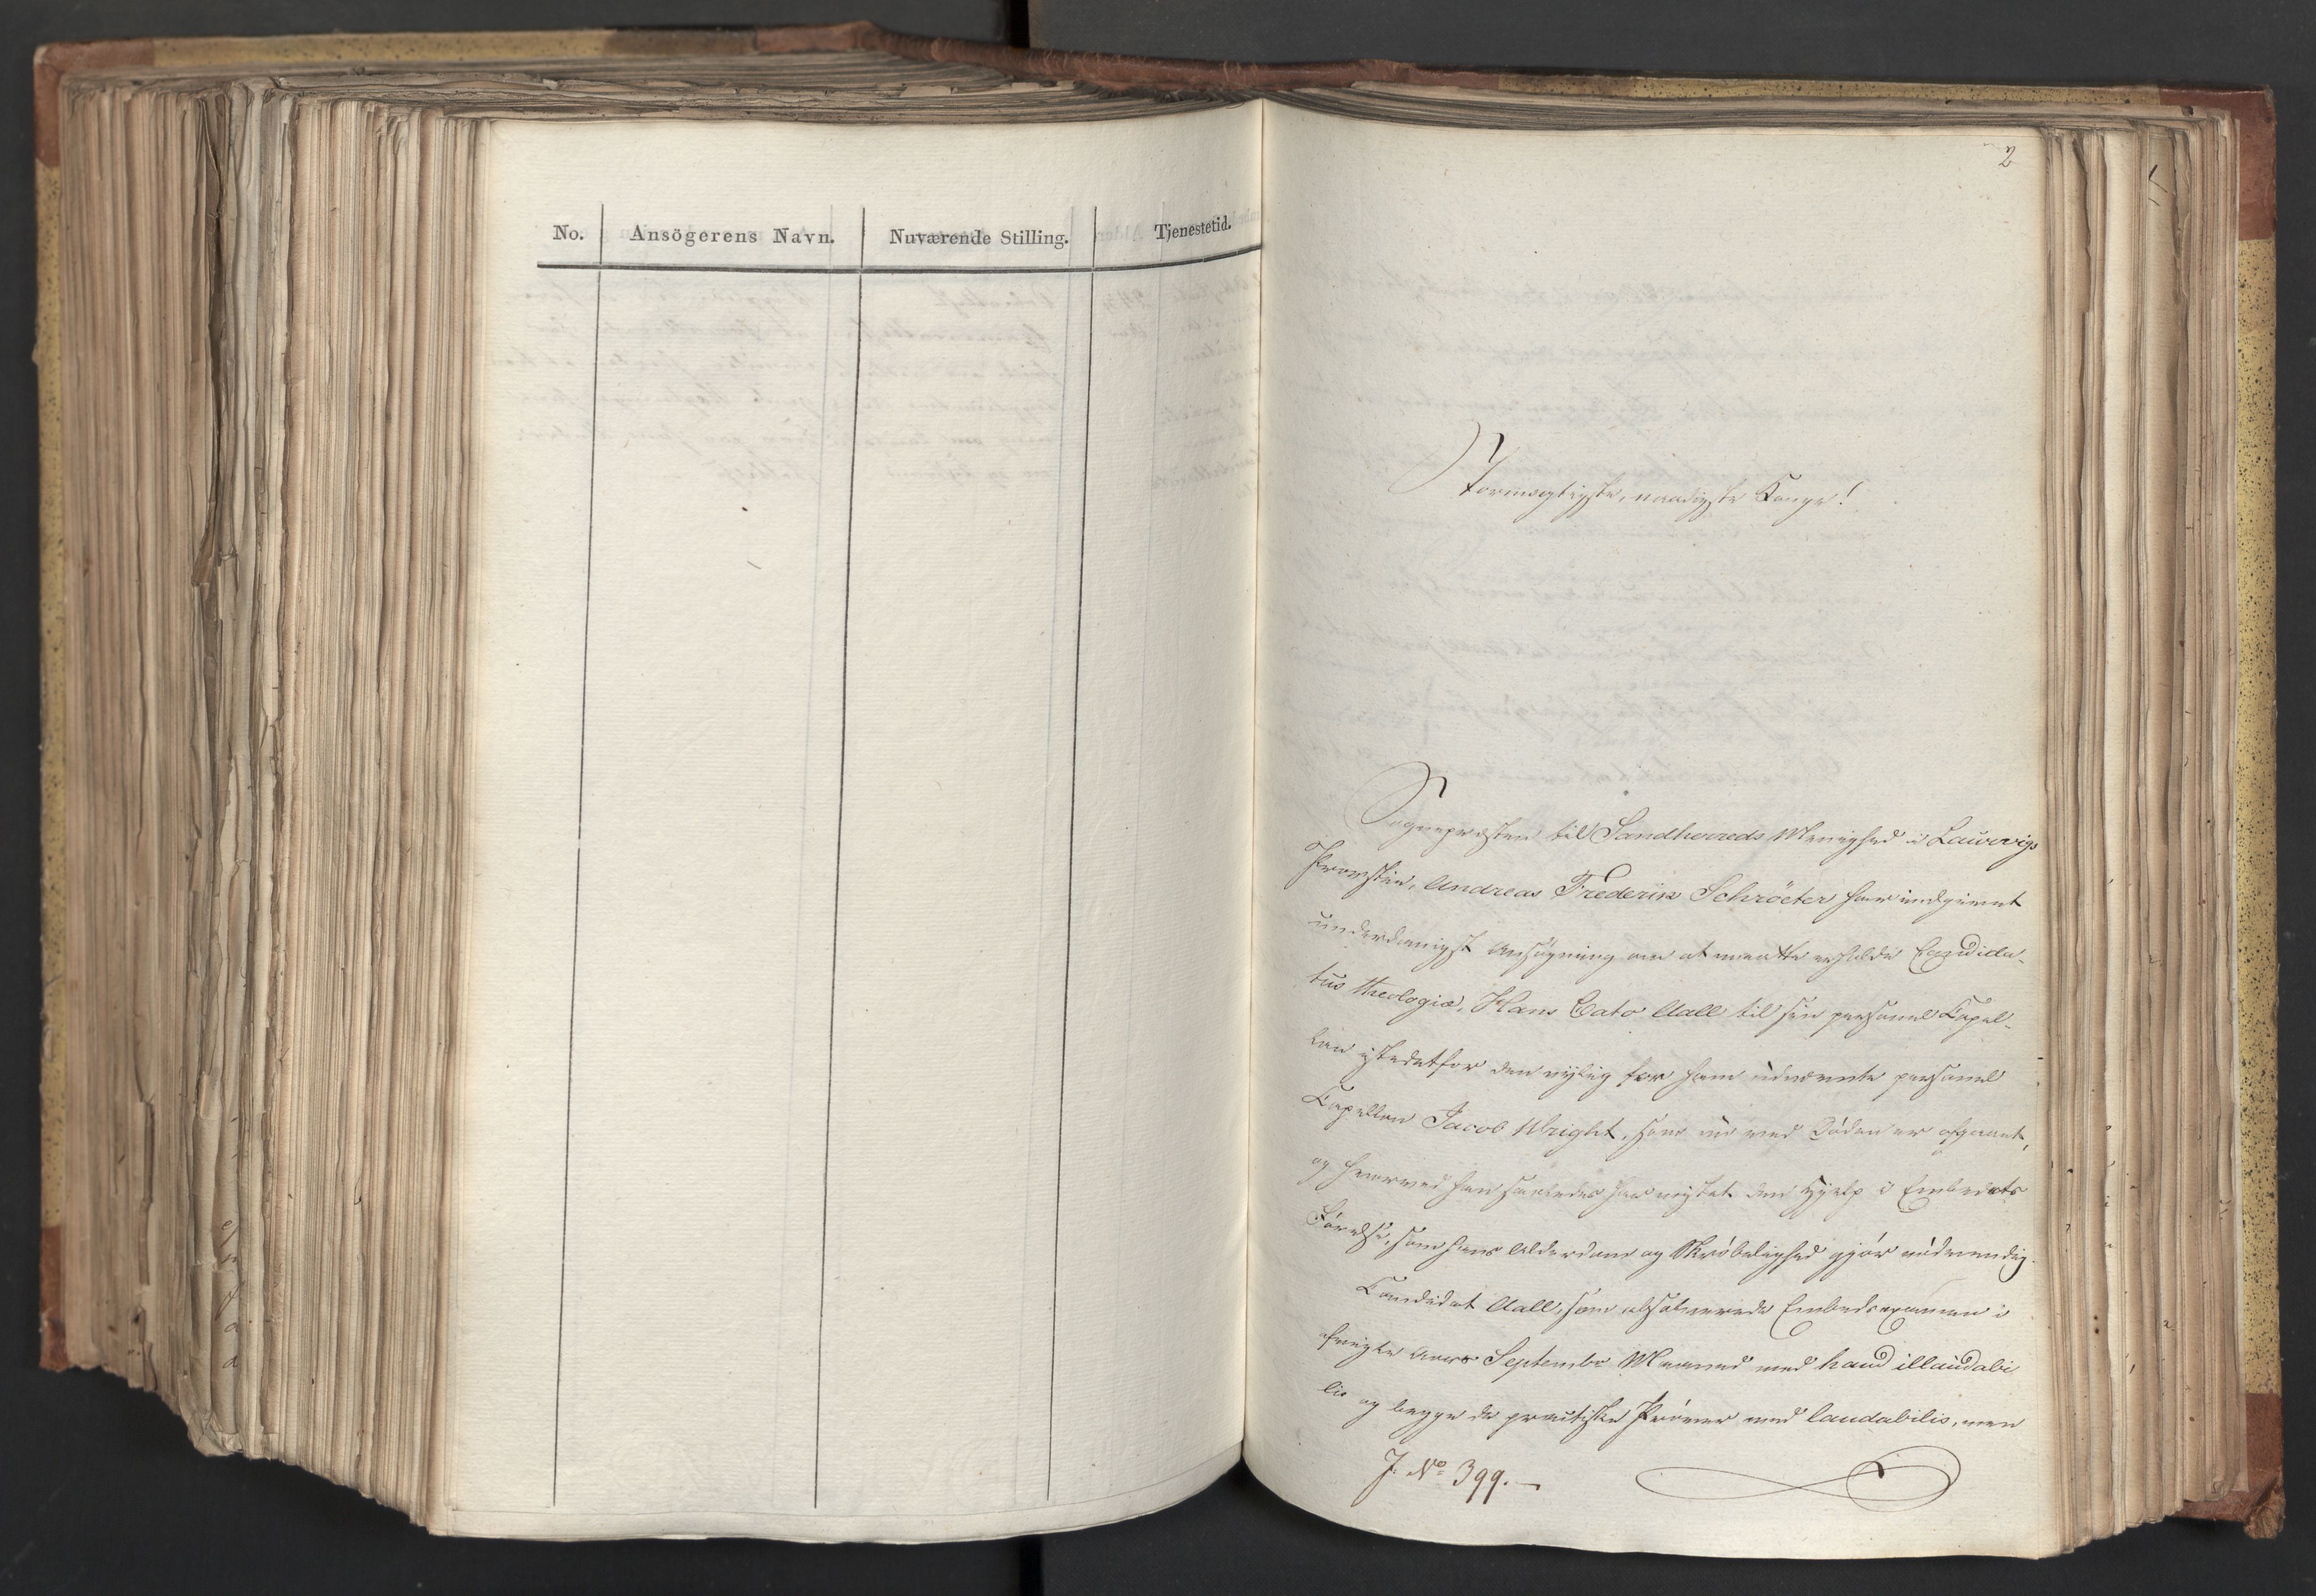 No. Ansögerens Navn. Nuværende Stilling. Tjenestetid.
2
Stormægtigste, naadigste Konge!
Sognepræsten til Sandherreds Menighed i Laurvigs
Provstie, Andreas Frederik Schröeter har indgivet
underdanigst Ansøgning om at maatte erholde Candida-
tus theologiæ, Hans Cato Aall til sin personel Capel-
lan istedetfor den nylig for ham udnævnte personel
Capellan Jacob Wright, som nu ved Døden er afgaaet,
og hvorved han saaledes har mistet den Hjelp i Embedets
Førelse, som hans Alderdom og Skrøbelighed gjør nødvendig.
Candidat Aall, som absolverede Embedsexamen i
afvigte Aars September Maaned med haud illaudabi
lis og begge de practiske Prøver med laudabilis, men
J. No 399.